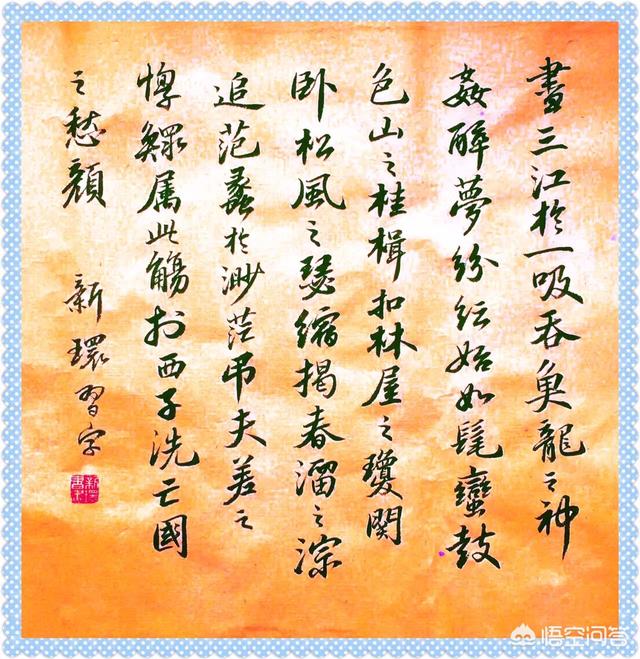 盡三江於一吸吞魚龍之神
姦醉夢紛紜始如髦蠻鼓
色山之桂楫扣林屋之瓊関
卧松風之瑟縮揭春溜之淙
追范蠡於渺茫吊夫差之
惸鰥属此觴於西子洗亡國
之愁顔
新環習字
悟空问答